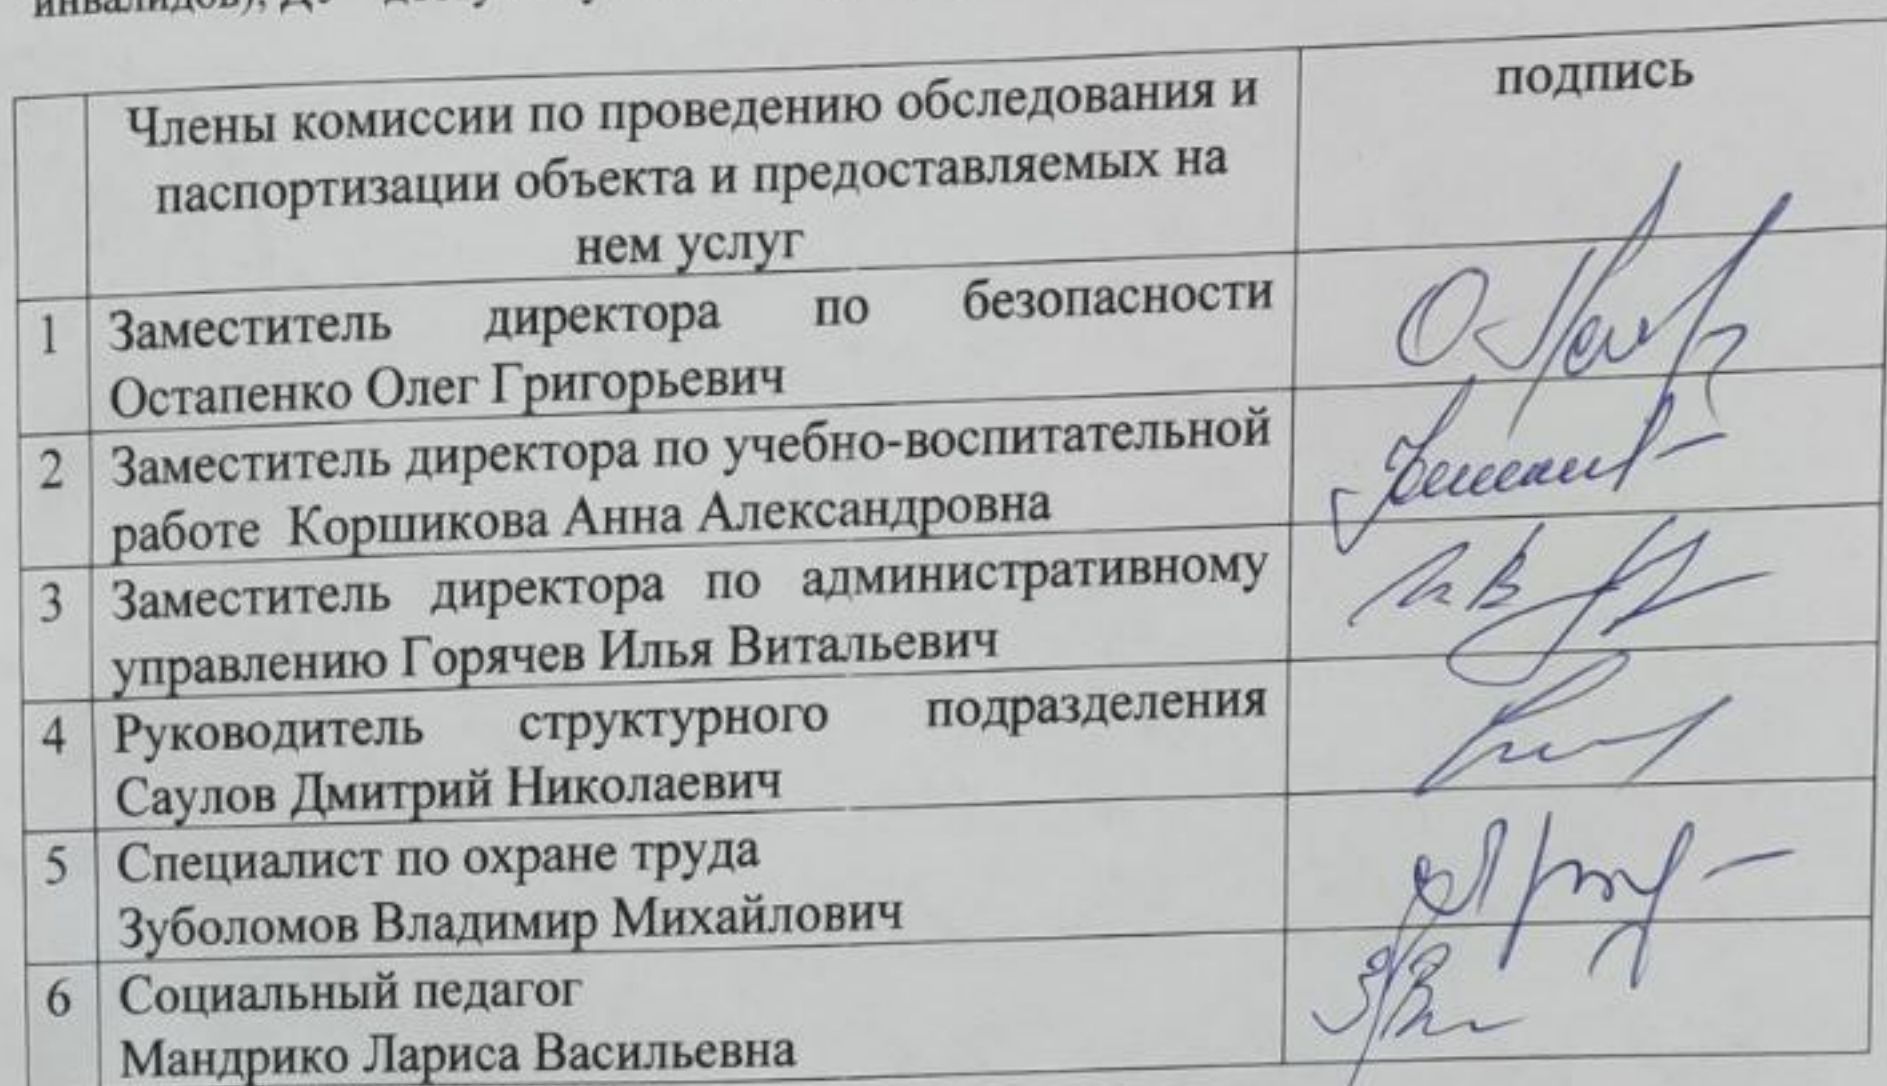 Члены комиссии по проведению обследования и
паспортизации объекта и предоставляемых на
нем услуг
подпись
1 Заместитель директора по безопасности
Остапенко Олег Григорьевич
2 Заместитель директора по учебно-воспитательной
работе Коршикова Анна Александровна
3 Заместитель директора по административному
управлению Горячев Илья Витальевич
4 Руководитель структурного подразделения
Саулов Дмитрий Николаевич
5 Специалист по охране труда
Зуболомов Владимир Михайлович
6 Социальный педагог
Мандрико Лариса Васильевна